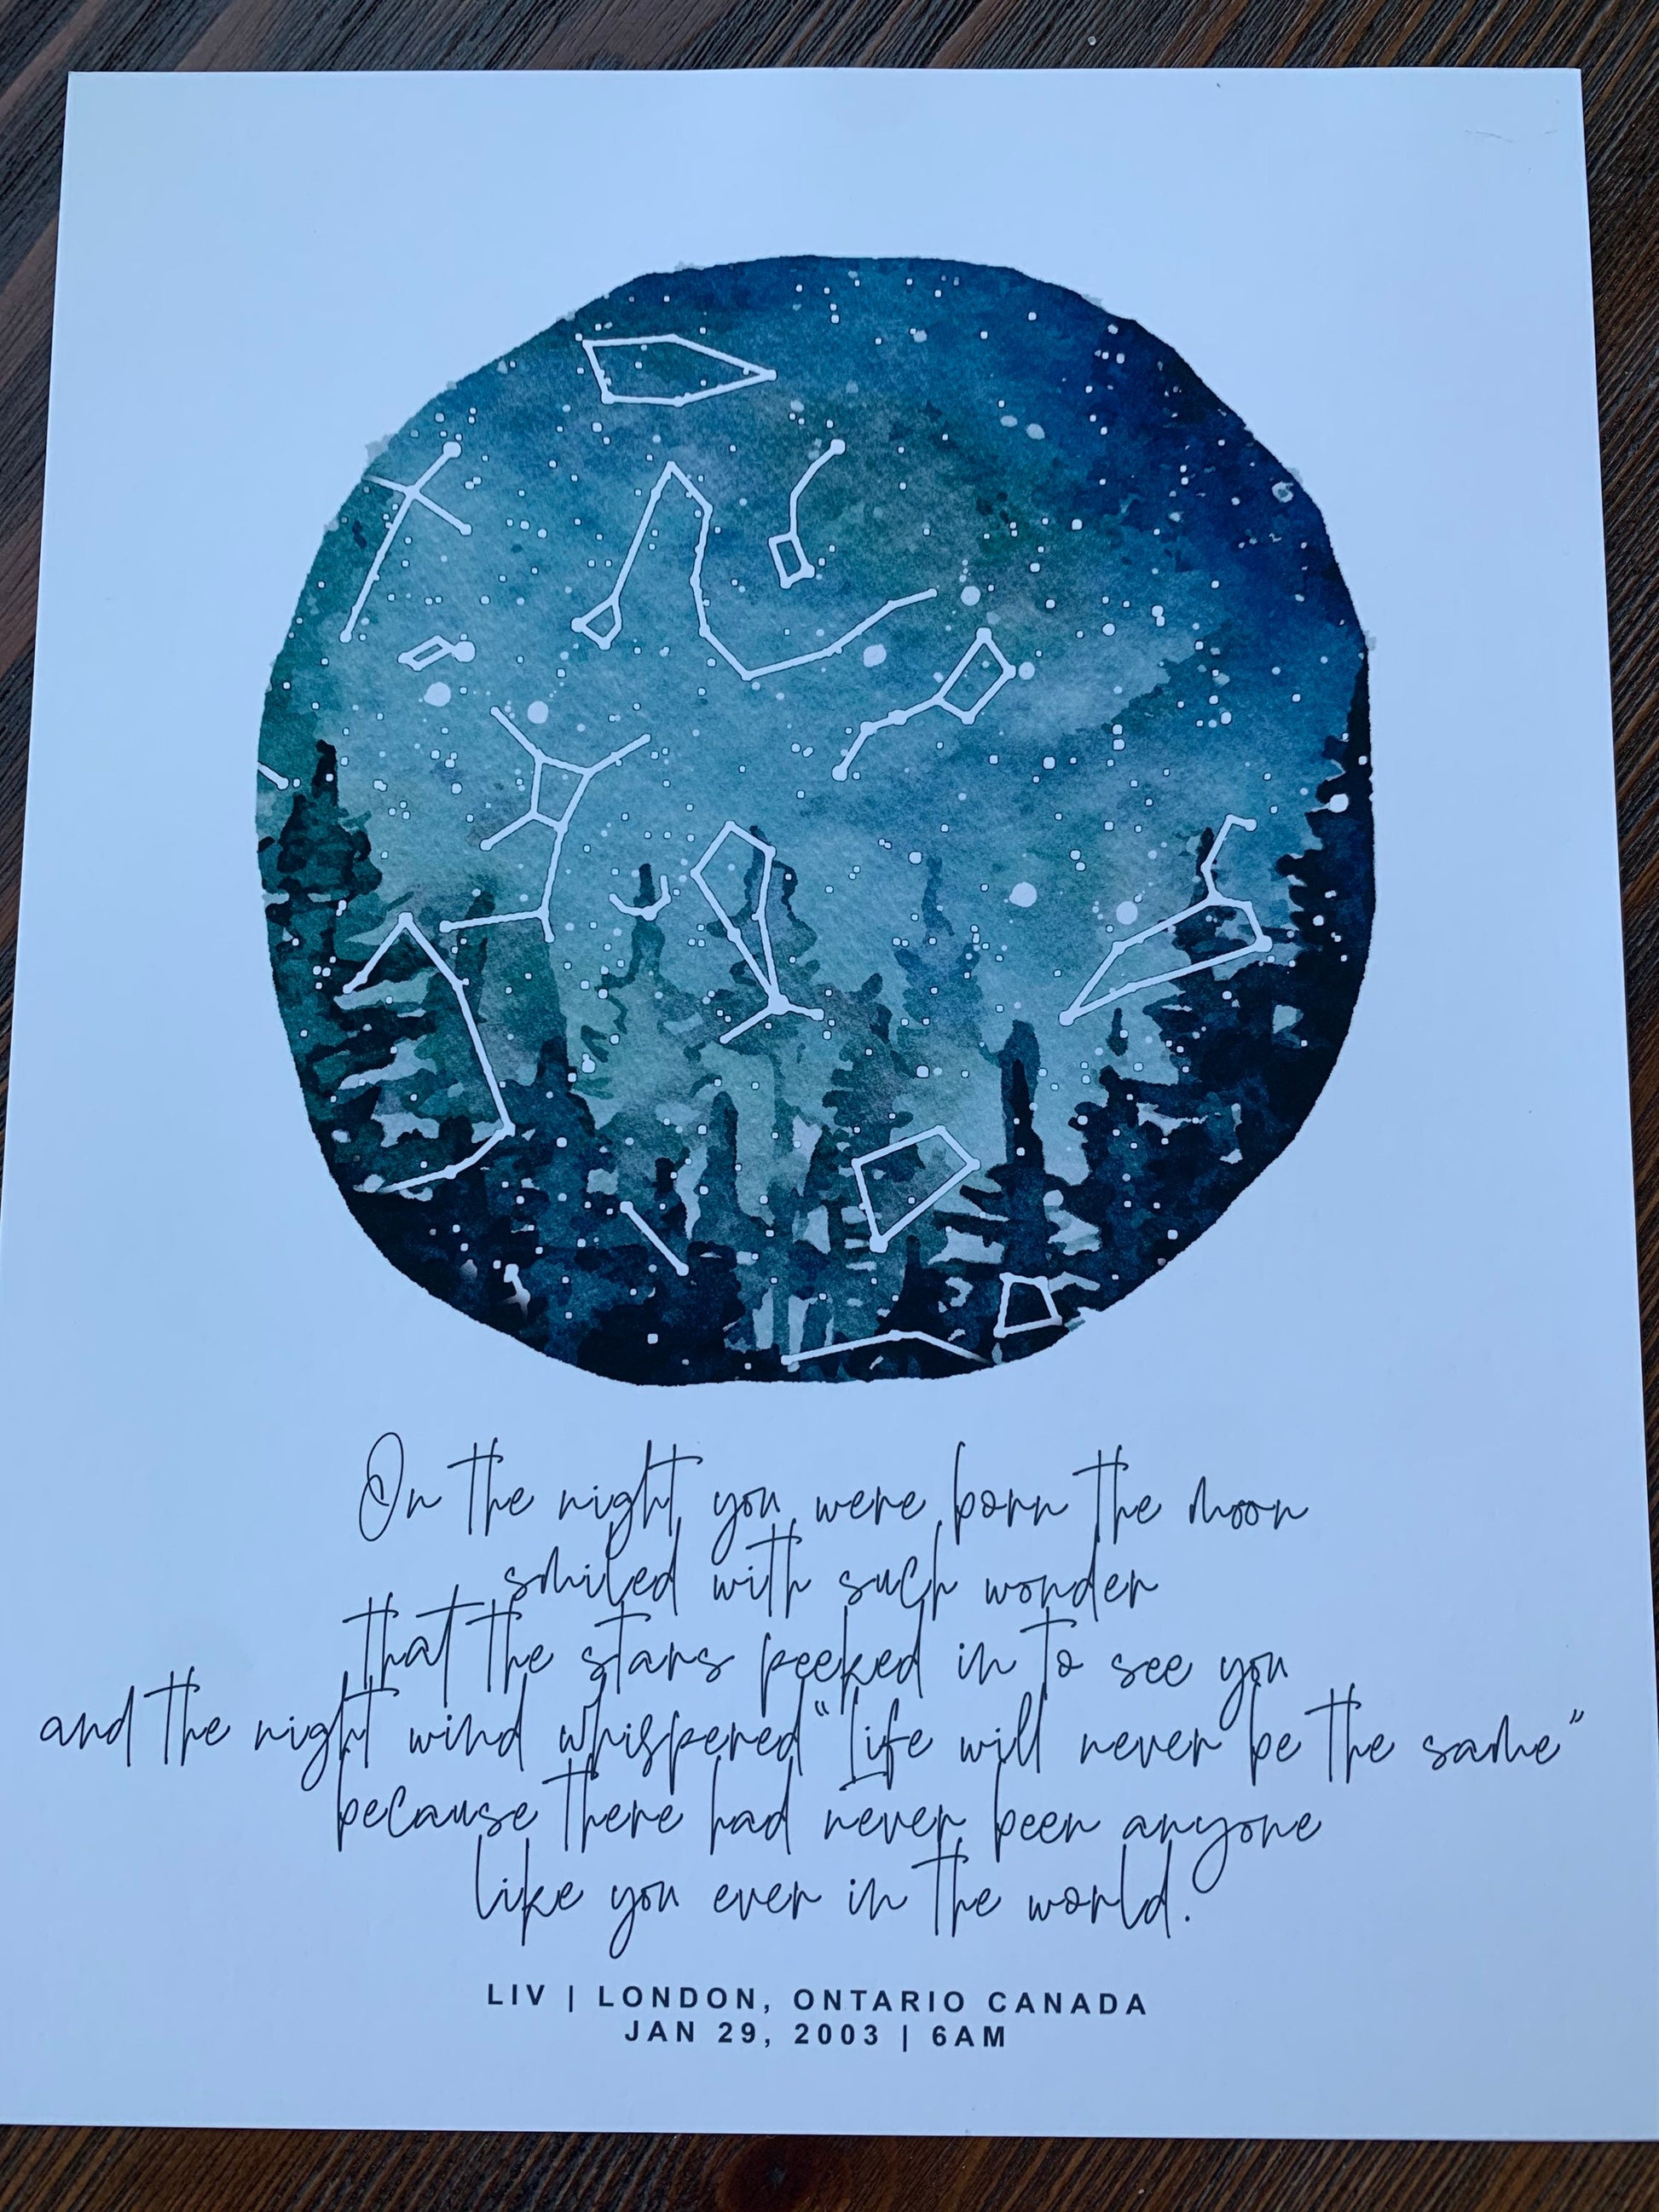 On the night you were born the moon
smiled with such wonder
that the stars peeked in to see you
and the night wind whispered "life will never be the same"
because there had never been anyone
like you ever in the world.
LIV | LONDON, ONTARIO CANADA
JAN 29, 2003 | 6AM